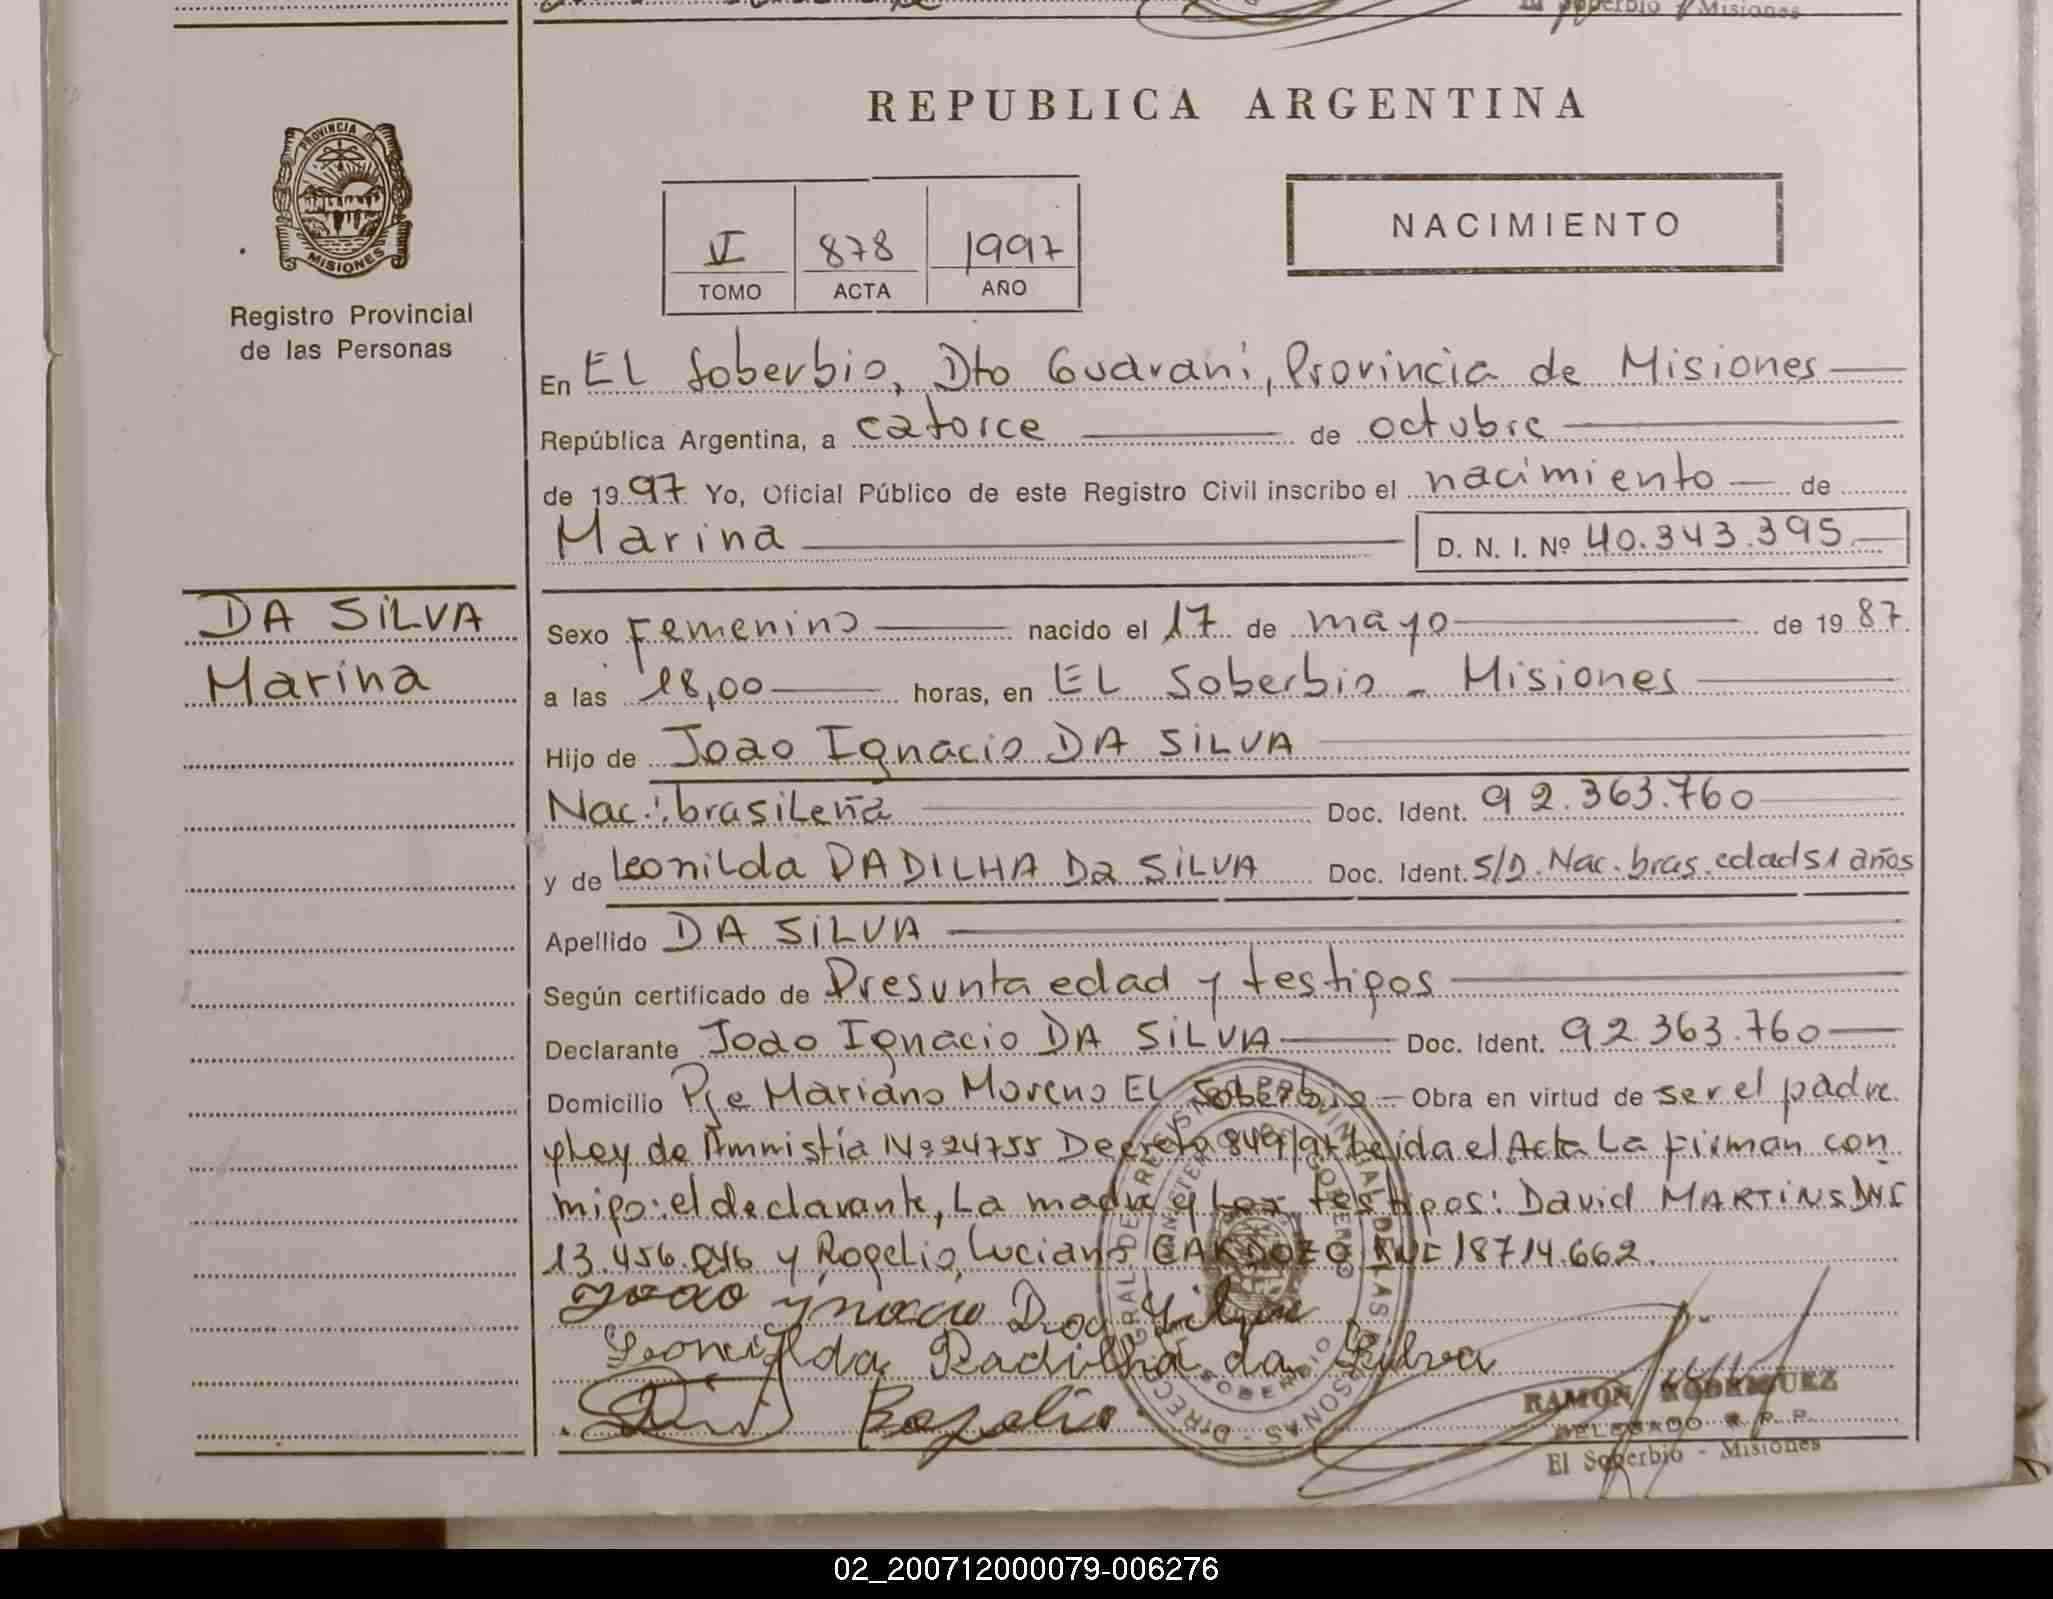 El Soberbio - Misiones
REPUBLICA ARGENTINA
PROVINCIA DE
MISIONES
Registro Provincial
de las Personas
VI 878 1997
TOMO ACTA AÑO
NACIMIENTO
En EL Soberbio, Dto Guaraní, Provincia de Misiones
República Argentina, a catorce de octubre
de 1997 Yo, Oficial Público de este Registro Civil inscribo el nacimiento de
Marina D. N. I. Nº 40.343.395
DA SiLVA
Marina
Sexo Femenino nacido el 17 de mayo de 1987
a las 18,00 horas, en EL Soberbio - Misiones
Hijo de Joao Ignacio DA SiLVA
Nac.: brasileña Doc. Ident. 92.363.760
y de Leonilda PADILHA Da SiLVA Doc. Ident. S/D. Nac. bras. edad 51 años
Apellido DA SiLVA
Según certificado de Presunta edad y testigos
Declarante Joao Ignacio DA SiLVA Doc. Ident. 92.363.760
Domicilio Pje Mariano Moreno EL Soberbio - Obra en virtud de ser el padre
y Ley de Amnistía Nº 24755 Decreto 849/97 Leída el Acta La Firman con
migo: el declarante, La madre y Los testigos: David MARTiNS DNI
13.456.046 y Rogelio Luciano CARDOZO DNI 18714.662.
João ynacio Da Silva
Leonilda Padilha da Silva
Rogelio
RAMON RODRIGUEZ
DELEGADO R. P. P.
El Soberbio - Misiones
02_200712000079-006276